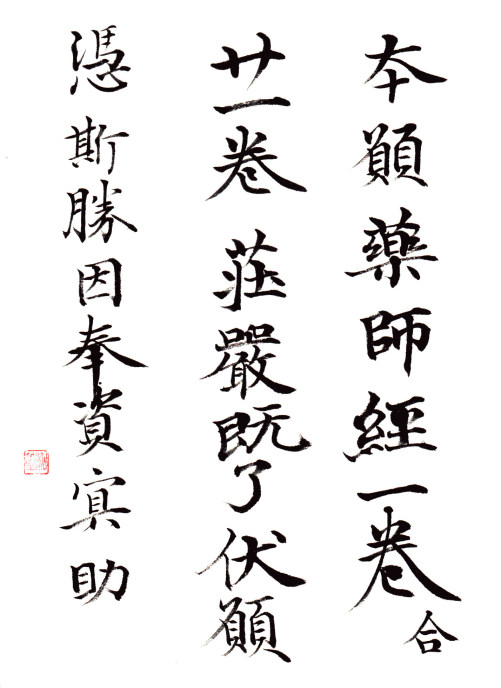 本願薬師經一卷合
廿一卷莊嚴既了伏願
憑斯勝因奉資冥助